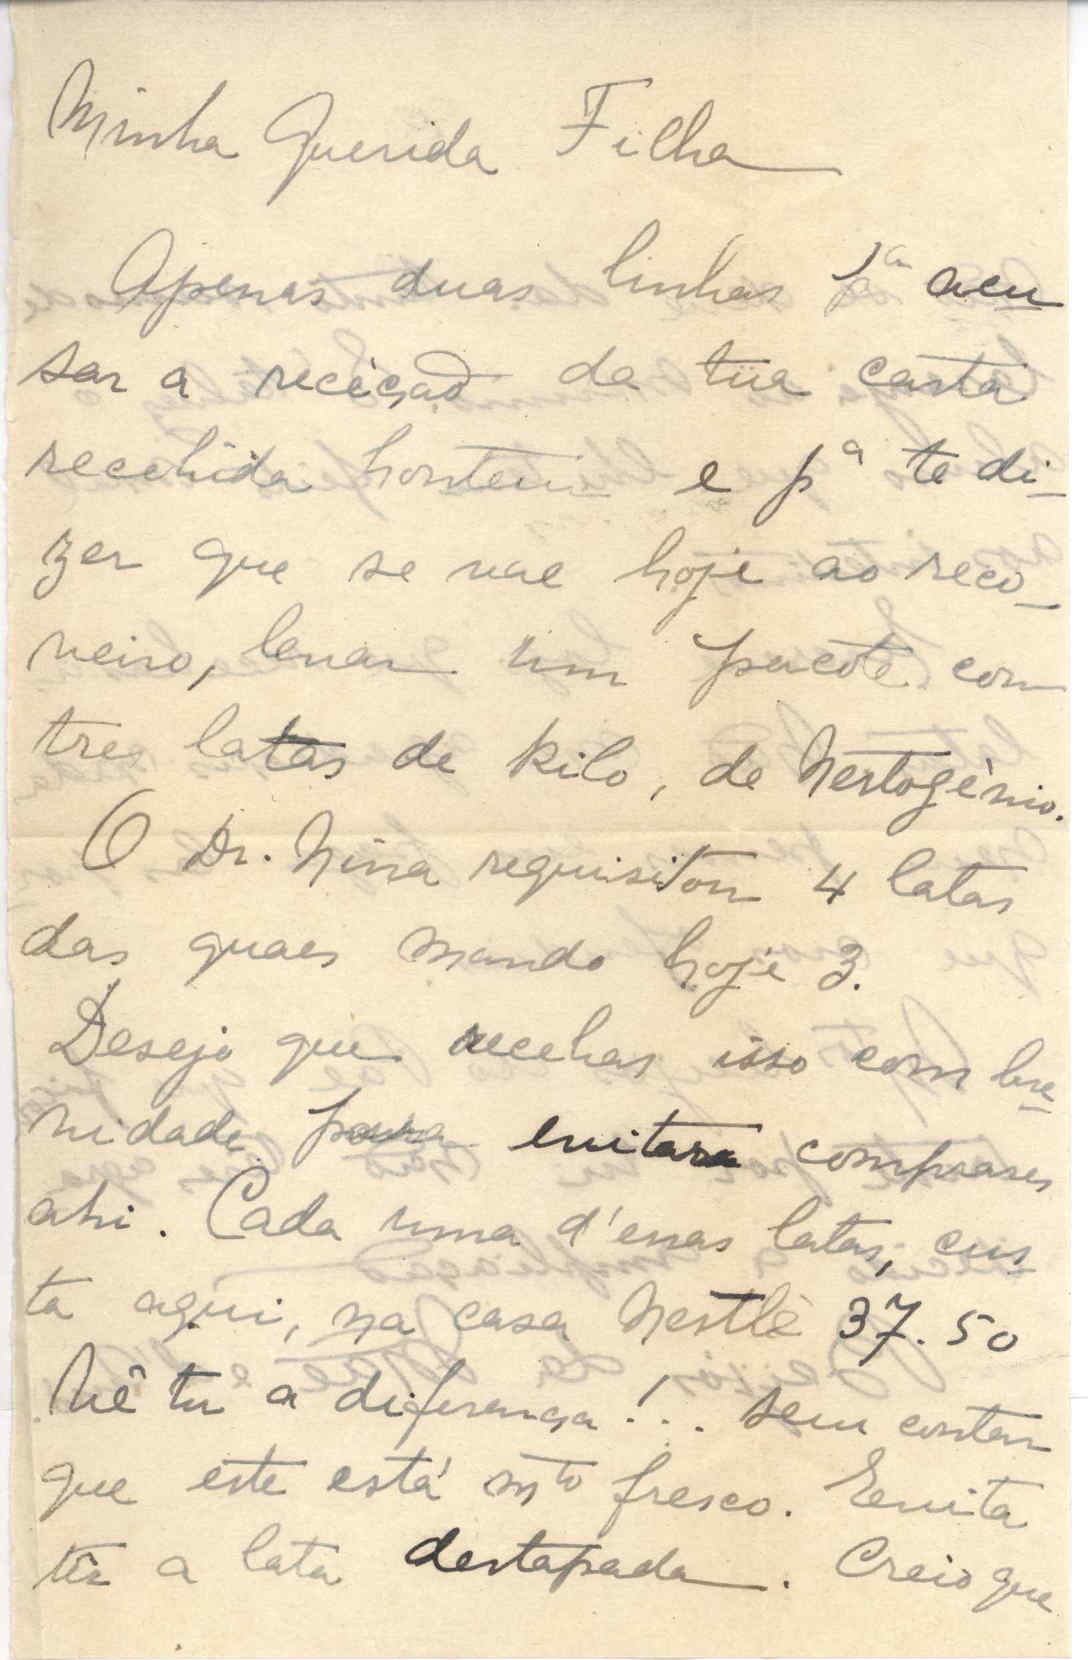 Minha Querida Filha
Apenas duas linhas pª acu
sar a receção da tua carta
recebida hontem e pª te di-
zer que se vae hoje ao reco-
veiro, levar um pacote com
tres latas de kilo, de Nestogènio.
O Dr. Nina requisitou 4 latas
das quaes mando hoje 3.
Desejo que recebas isso com bre-
vidade para evitar comprares
ahi. Cada uma d'essas latas, cus-
ta aqui, na casa Nestlè 37.50
Vê tu a diferença!.. sem contar
que este está mto fresco. Evita
tu a lata destapada. Creio que